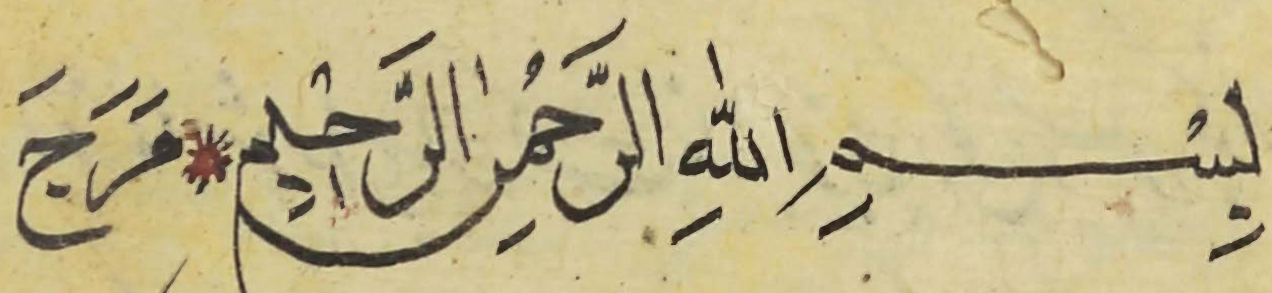 بِسْمِ اللّٰهِ الرَّحْمٰنِ الرَّحِيْمِ * مَرَجَ